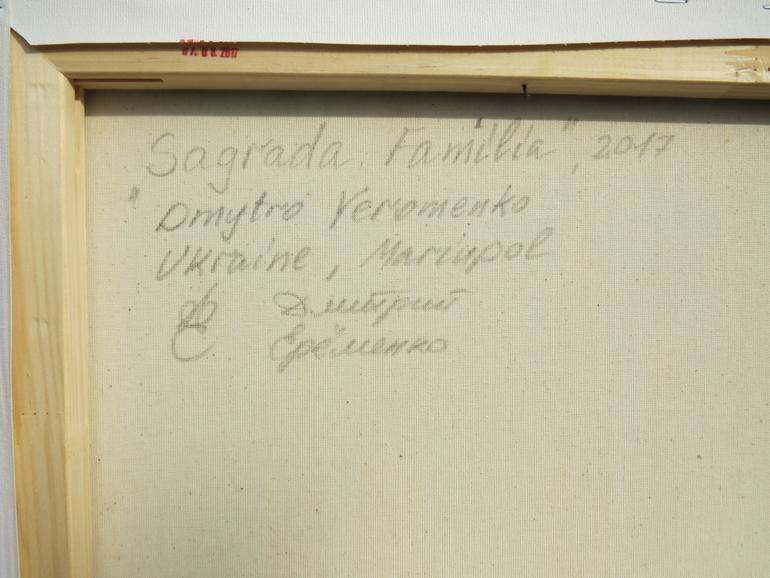 07.08.2017
Sagrada Familia", 2017
"Dmytro Yeromenko
Ukraine, Mariupol
Дмитрий
Ерёменко